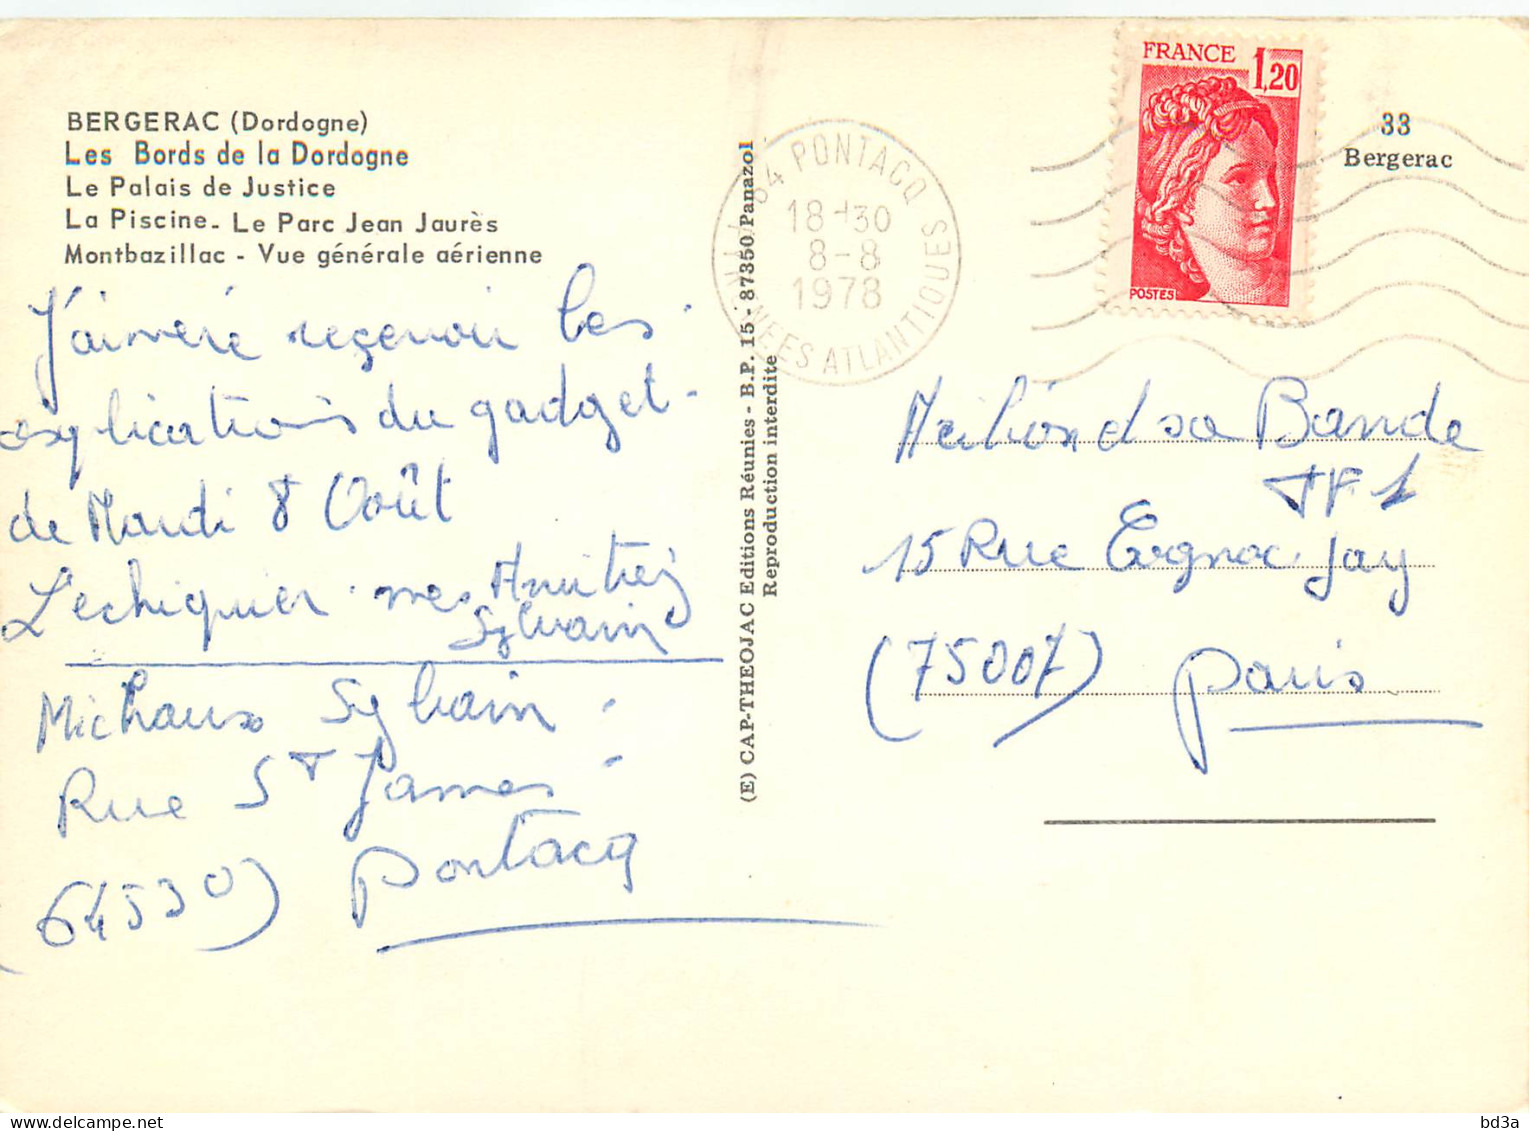 BERGERAC (Dordogne)
Les Bords de la Dordogne
Le Palais de Justice
La Piscine - Le Parc Jean Jaurès
Montbazillac - Vue générale aérienne
J'aimeré reçevoir les
explications du gadget.
de Mardi 8 Août
L'echiquier. mes Amitiés
Sylvain
Michaux Sylvain
Rue St James
(64530) Pontacq
(E) CAP-THEOJAC Editions Réunies - B.P. 15 - 87350 Panazol
Reproduction interdite
64 PONTACQ
18-30
8-8
1978
PYRENEES ATLANTIQUES
FRANCE 1,20
POSTES
33
Bergerac
et sa Bande
TF1
15 Rue Cognac Jay
(75007) Paris
bd3a